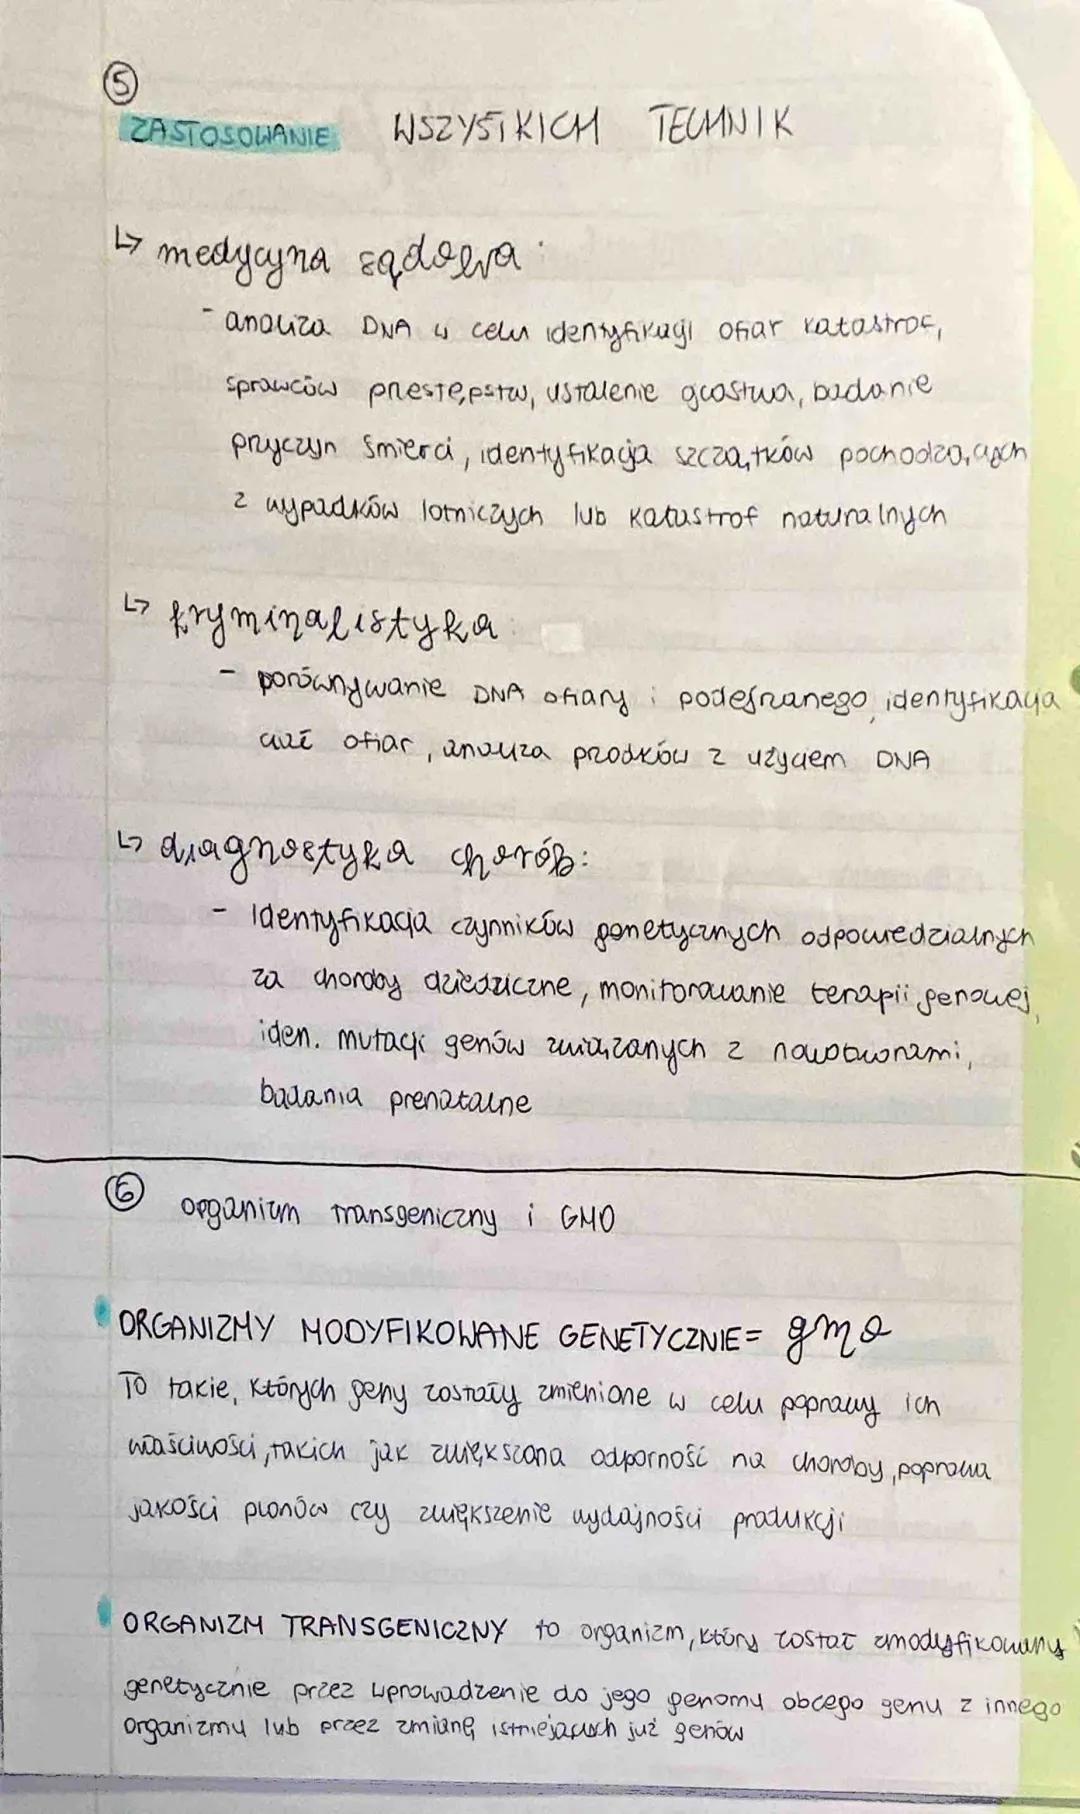 5
ZASTOSOWANIE WSZYSTKICH TECHNIK
↳ medycyna sądowa:
- analiza DNA w celu identyfikacji ofiar katastrof,
sprawców przestępstw, ustalenie ojcostwa, badanie
przyczyn śmierci, identyfikacja szczątków pochodzących
z wypadków lotniczych lub katastrof naturalnych
↳ kryminalistyka:
- porównywanie DNA ofiary i podejrzanego, identyfikacja
ciał ofiar, analiza przodków z użyciem DNA
↳ diagnostyka chorób:
- identyfikacja czynników genetycznych odpowiedzialnych
za choroby dziedziczne, monitorowanie terapii genowej,
iden. mutacji genów związanych z nowotworami,
badania prenatalne
6 organizm transgeniczny i GMO
ORGANIZMY MODYFIKOWANE GENETYCZNIE= gmo
To takie, których geny zostały zmienione w celu poprawy ich
właściwości, takich jak zwiększona odporność na choroby, poprawa
jakości plonów czy zwiększenie wydajności produkcji
ORGANIZM TRANSGENICZNY to organizm, który został zmodyfikowany
genetycznie przez wprowadzenie do jego genomu obcego genu z innego
organizmu lub przez zmianę istniejących już genów